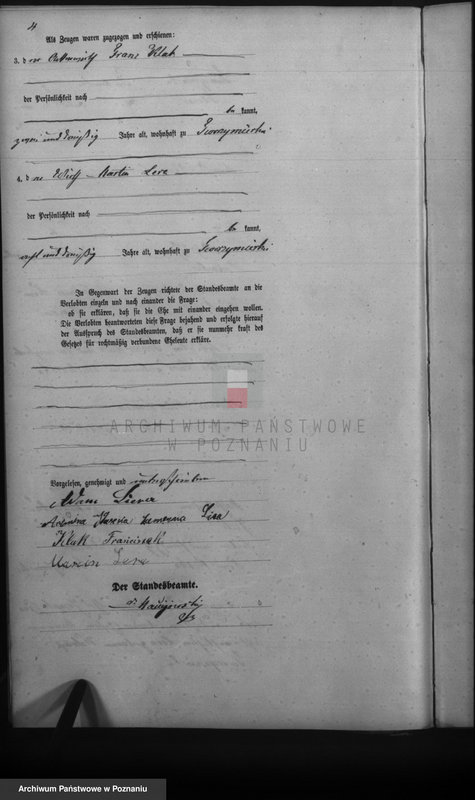 4
Als Zeugen waren zugezogen und erschienen:
3. der Franz Klak
der Persönlichkeit nach
be kannt,
zwei und dreißig Jahre alt, wohnhaft zu
4. der Wirth Martin Lera
der Persönlichkeit nach
be kannt,
acht und dreißig Jahre alt, wohnhaft zu
In Gegenwart der Zeugen richtete der Standesbeamte an die
Verlobten einzeln und nach einander die Frage:
ob sie erklären, daß sie die Ehe mit einander eingehen wollen.
Die Verlobten beantworteten diese Frage bejahend und erfolgte hierauf
der Ausspruch des Standesbeamten, daß er sie nunmehr kraft des
Gesetzes für rechtmäßig verbundene Eheleute erkläre.
ARCHIWUM PAŃSTWOWE
W POZNANIU
Vorgelesen, genehmigt und unterschrieben
Adam
Klak Franciszak
Marcin Lera
Der Standesbeamte.
Archiwum Państwowe w Poznaniu